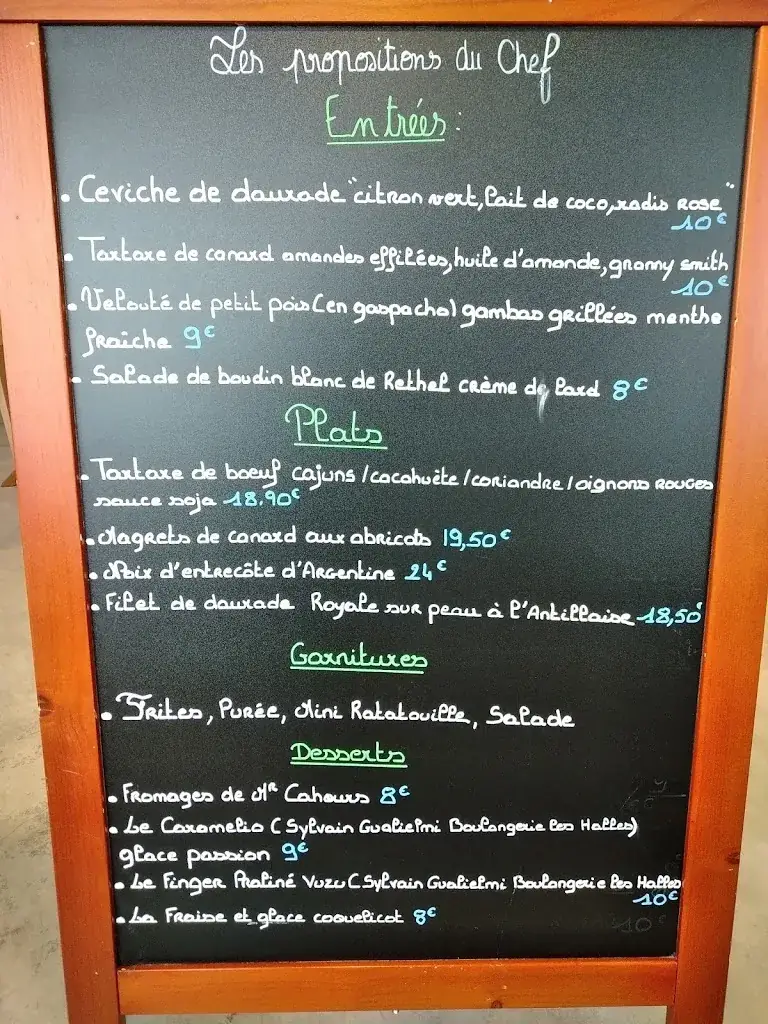 Les propositions du Chef
Entrées :
• Ceviche de daurade "citron vert, lait de coco, radis rose"
10€
• Tartare de canard amandes effilées, huile d'amande, granny smith
10€
• Velouté de petit pois (en gaspacho) gambas grillées menthe
fraîche 9€
• Salade de boudin blanc de Rethel crème de lard 8€
Plats
• Tartare de boeuf cajuns / cacahuète / coriandre / oignons rouges
sauce soja 18.90€
• Magrets de canard aux abricots 19,50€
• Noix d'entrecôte d'Argentine 24€
• Filet de daurade Royale sur peau à l'Antillaise 18,50
Garnitures
• Frites, Purée, Mini Ratatouille, Salade
Desserts
• Fromages de Mr Cahours 8€
• Le Caramelio (Sylvain Gualielmi Boulangerie les Halles)
glace passion 9€
• Le Finger Praliné Yuzu (Sylvain Gualielmi Boulangerie les Halles
10€
• La Fraise et glace coquelicot 8€